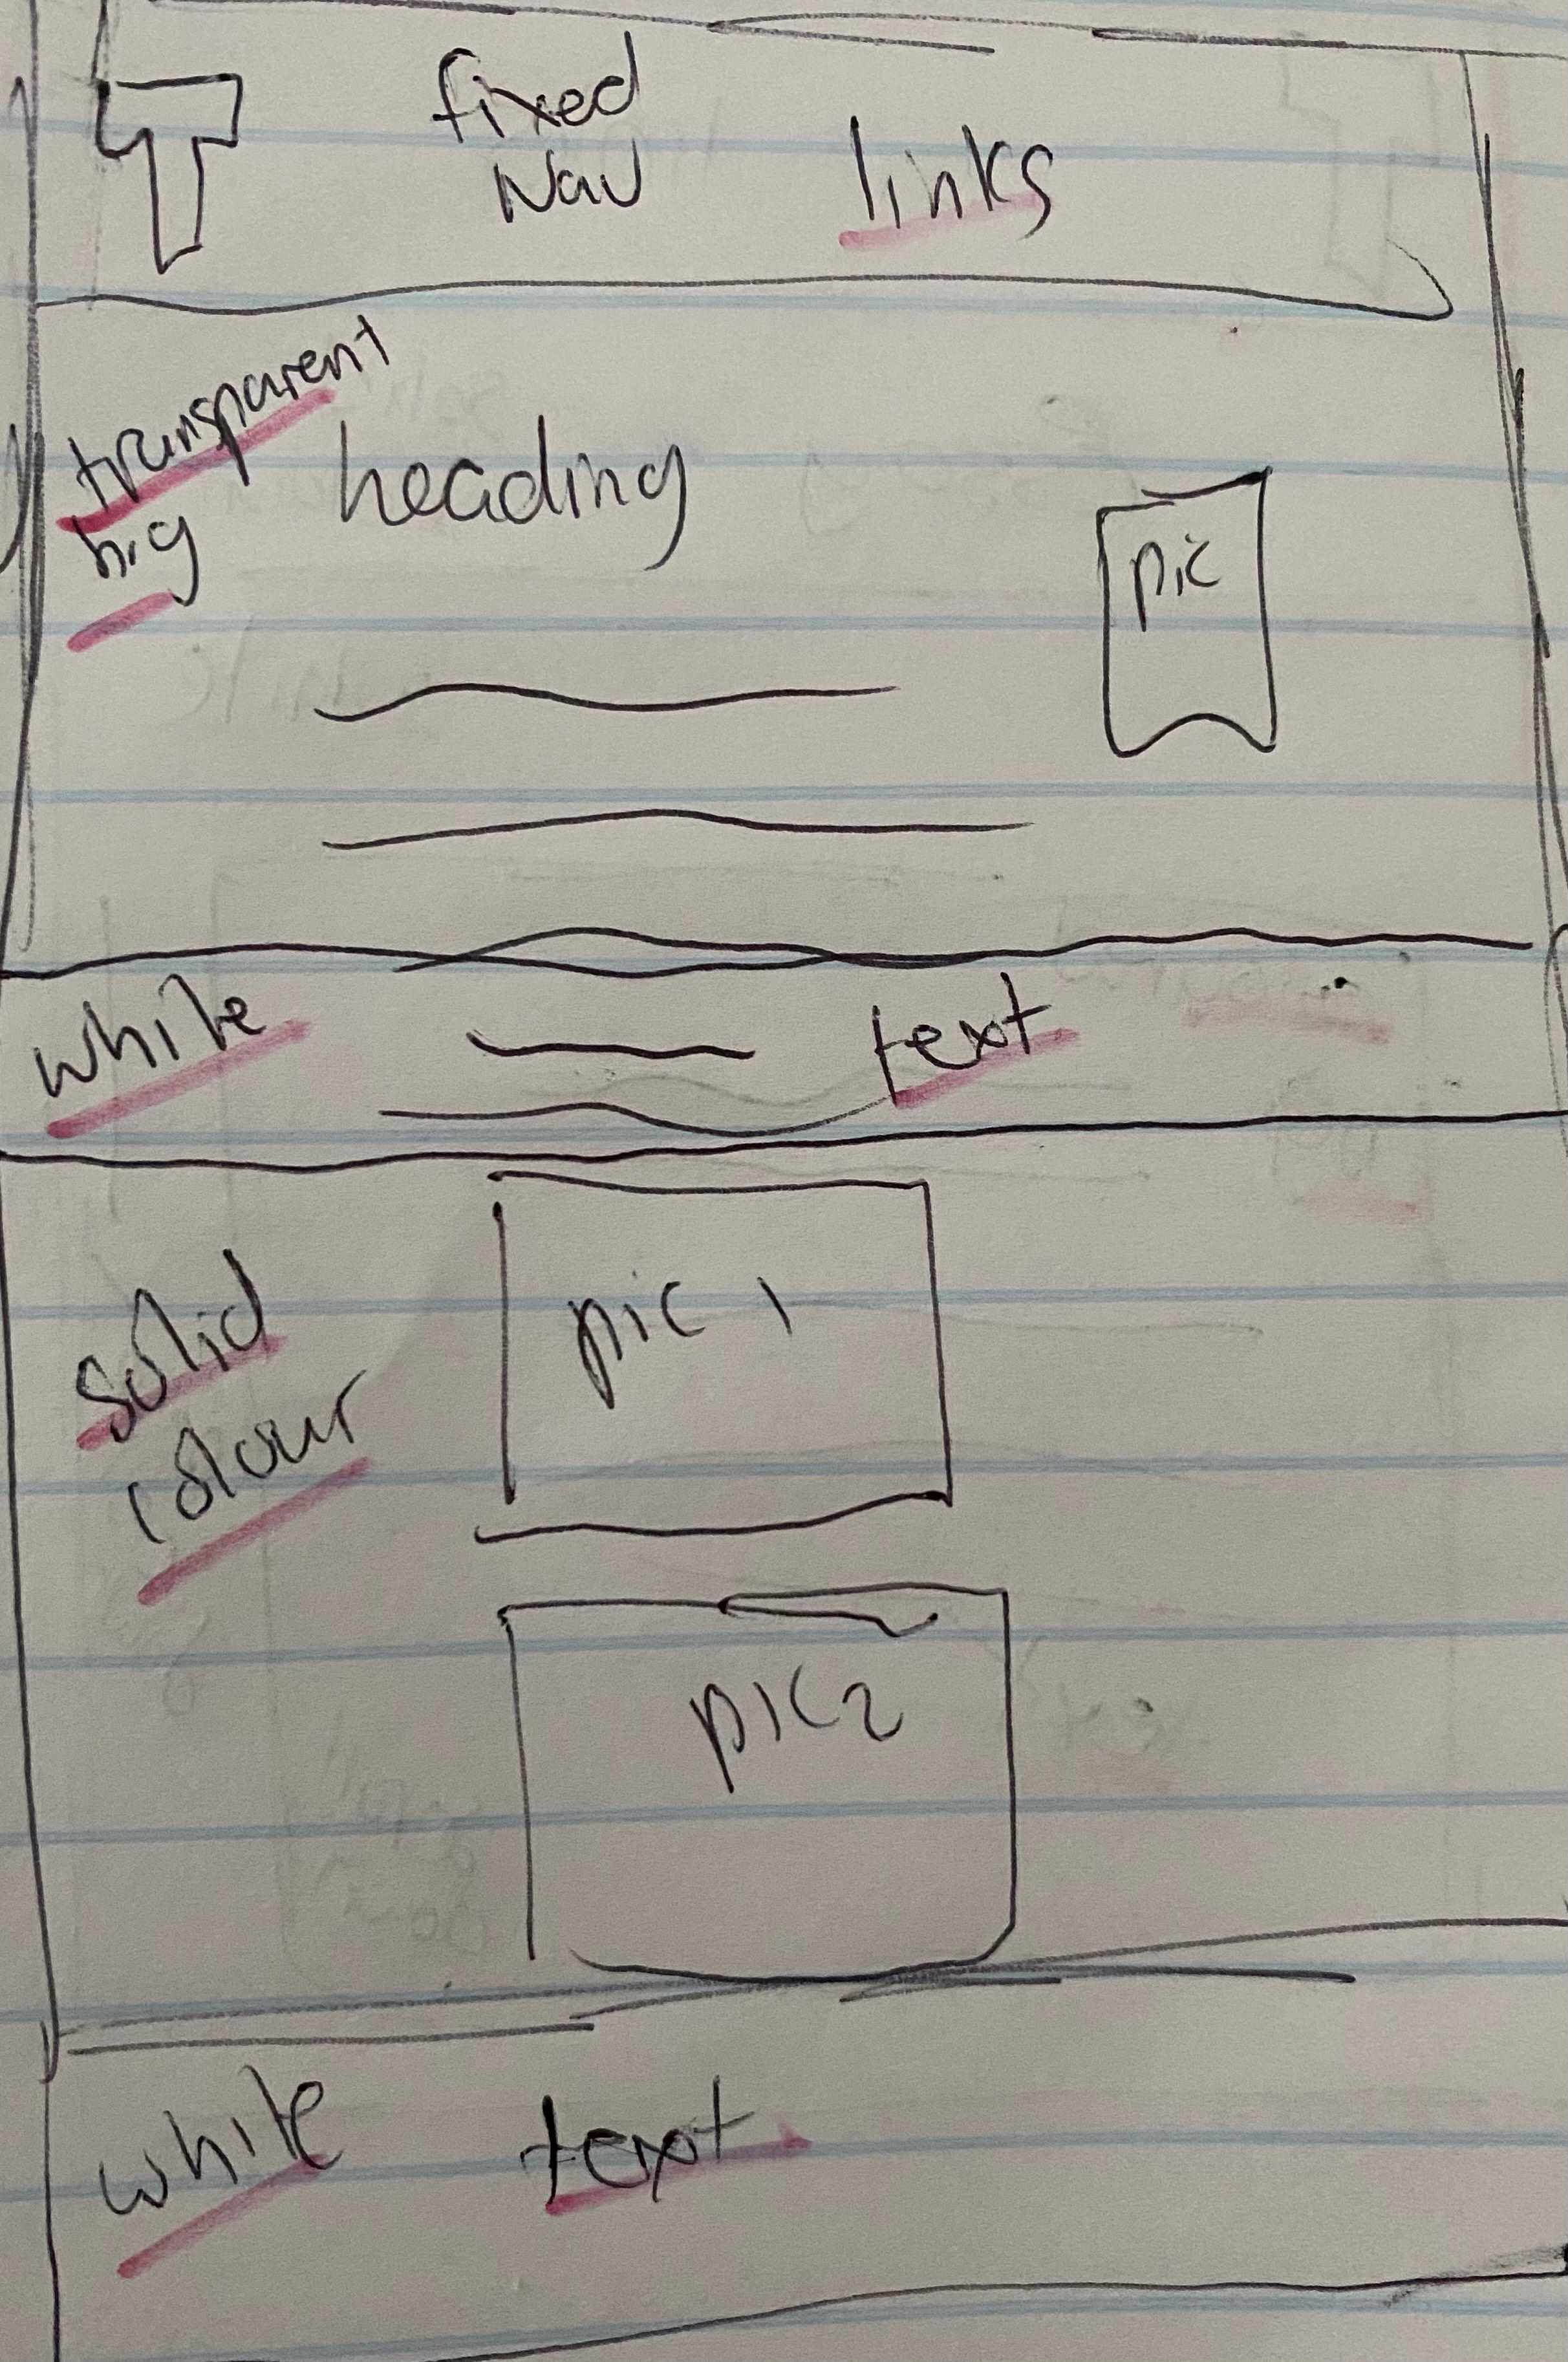 T
fixed
Nav
links
transparent
big
heading
pic
white
text
solid
colour
pic 1
pic 2
white
text